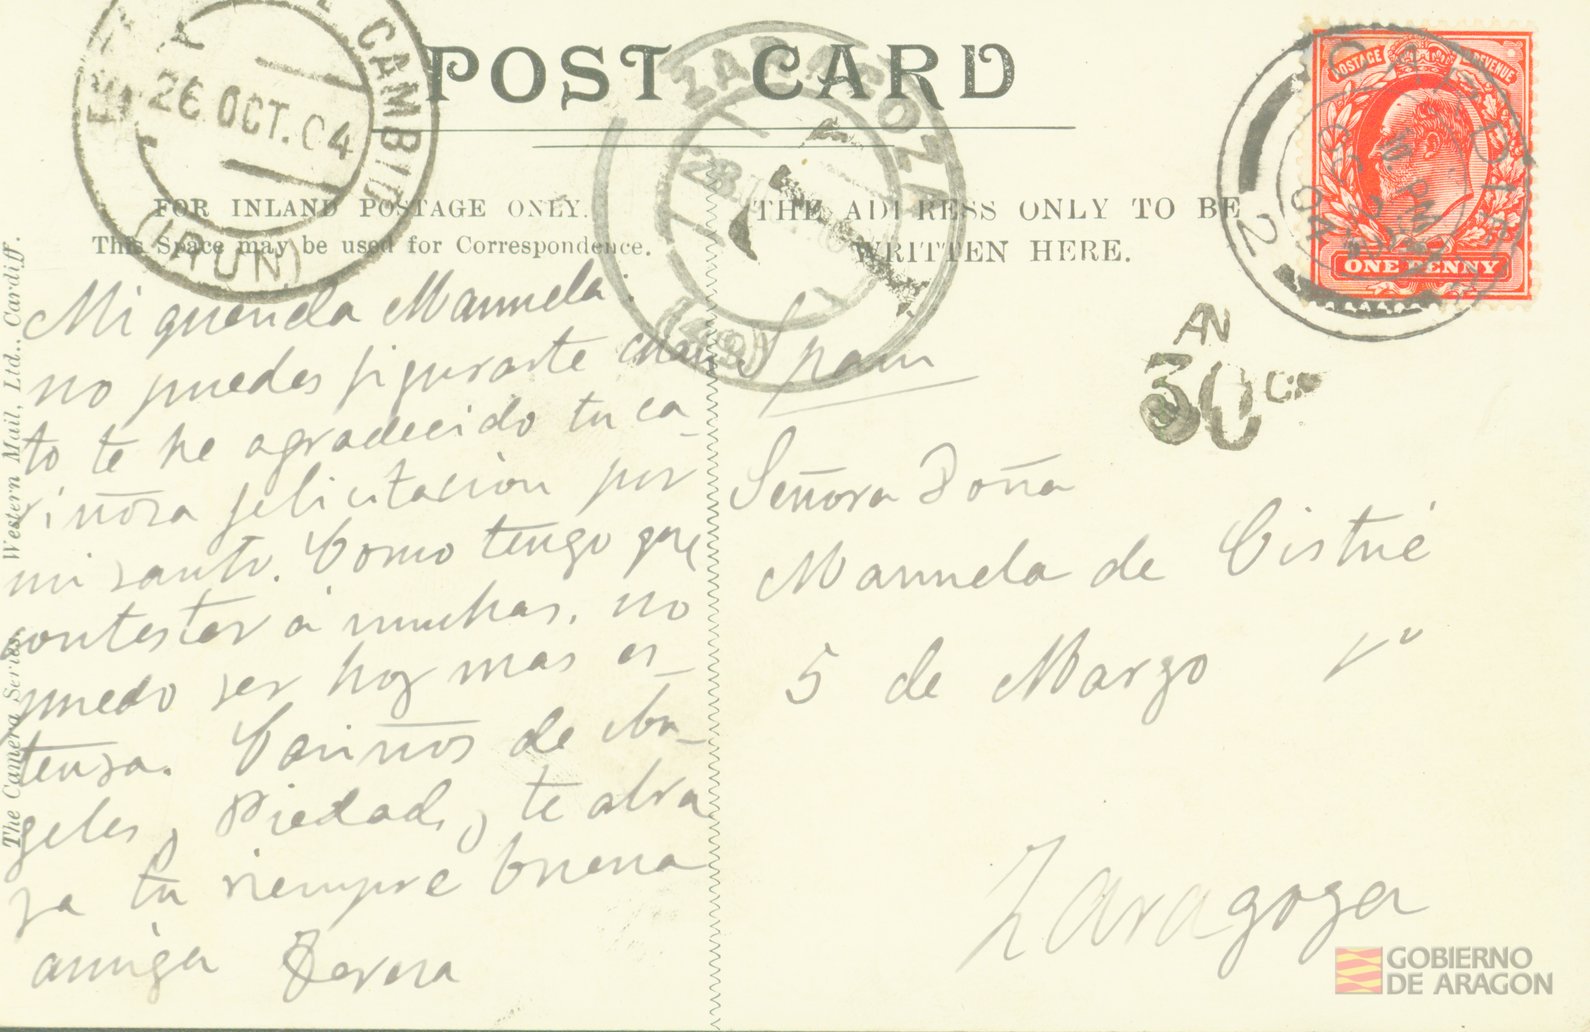 POST CARD
FOR INLAND POSTAGE ONLY.
This Space may be used for Correspondence.
THE ADDRESS ONLY TO BE
WRITTEN HERE.
CAMBIO
26 OCT. 04
(IRUN)
ZARAGOZA
28
CARDIFF
2
POSTAGE REVENUE
ONE PENNY
AN
30 C.
Mi querida Manuela:
no puedes figurarte cuan
to te he agradecido tu ca-
riñosa felicitacion por
mi santo. Como tengo que
contestar á muchas, no
puedo ser hoy mas ex-
tensa. Cariños de
geles, Piedad, te abra
za tu siempre buena
amiga Teresa
Spain
Señora Doña
Manuela de Cistué
5 de Marzo
Zaragoza
The Camera Series. Western Mail, Ltd., Cardiff.
GOBIERNO
DE ARAGON